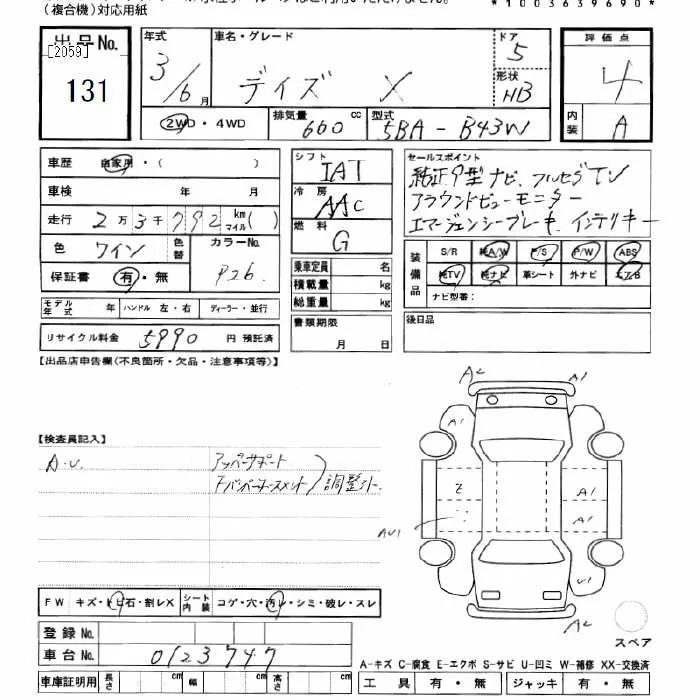 (複合機)対応用紙
*1003639690*
出品No.
[2059]
131
年式
3/6月
車名・グレード
デイズ X
ドア
5
形状
HB
評価点
4
内装
A
2WD・4WD
排気量
660
cc
型式
5BA-B43W
車歴
自家用・( )
車検
年 月
走行
2万3千792
km
マイル
( )
色
ワイン
色替
カラーNo.
P26
保証書
有・無
モデル年式
年
ハンドル
左・右
ディーラー・並行
リサイクル料金
5990
円
預託済
シフト
IAT
冷房
AAC
燃料
G
乗車定員
名
積載量
kg
総重量
kg
書類期限
月 日
セールスポイント
純正9型ナビ、フルセグTV
アラウンドビューモニター
エマージェンシーブレーキ、インテリキー
装備品
S/R
純A/W
P/S
P/W
ABS
純TV
純ナビ
革シート
外ナビ
エアB
ナビ型番:
後日品
【出品店申告欄(不良箇所・欠品・注意事項等)】
【検査員記入】
A・U.
アッパーサポート
調整外
A1
A1
A1
A1
A1
AU1
U1
E
スペア
FW
キズ・トビ石・割レX
シート内装
コゲ・穴・汚レ・シミ・破レ・スレ
登録No.
車台No.
0123747
車庫証明用
長さ
cm
幅
cm
高さ
cm
A-キズ C-腐食 E-エクボ S-サビ U-凹ミ W-補修 XX-交換済
工具
有・無
ジャッキ
有・無